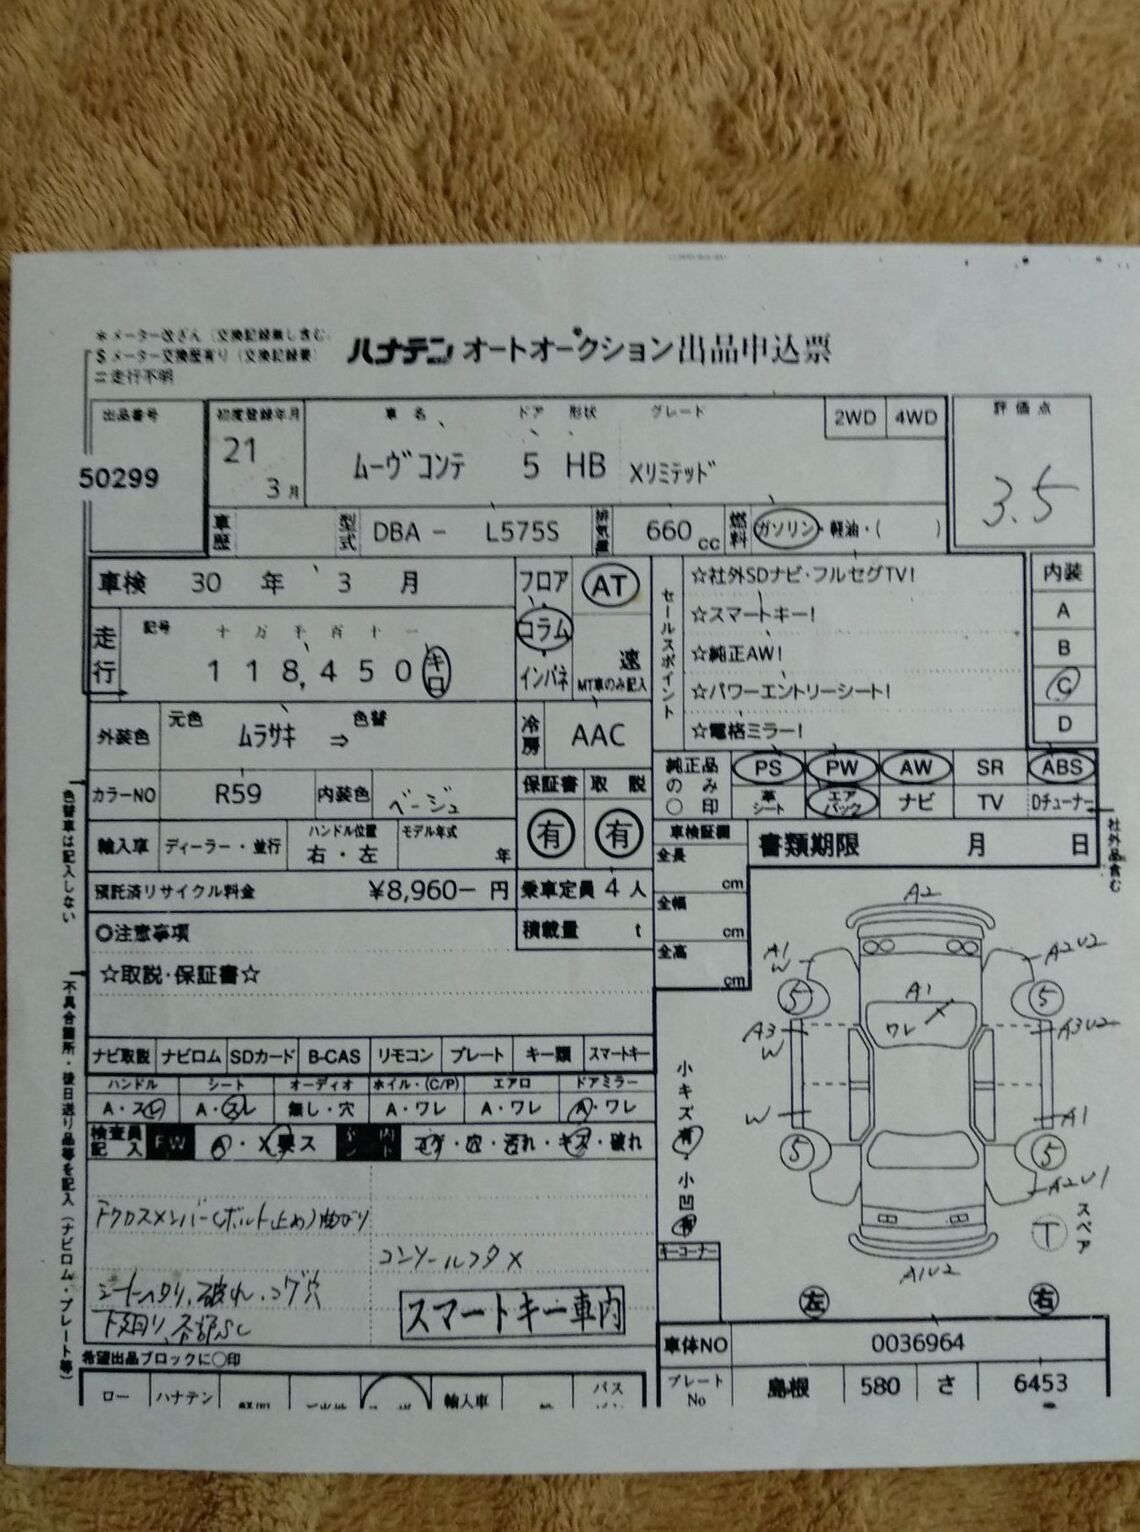 *メーター改ざん（交換記録無し含む）
$メーター交換歴有り（交換記録簿）
=走行不明
ハナテン オートオークション出品申込票
出品番号
50299
初度登録年月
21
3月
車名 ドア 形状 グレード
2WD 4WD
ムーヴコンテ 5 HB Xリミテッド
評価点
3.5
車歴
型式 DBA - L575S
排気量 660cc
燃料 ガソリン・軽油・( )
車検 30年 3月
フロア AT
コラム
インパネ
速
MT車のみ記入
走行
記号 十 万 千 百 十 一
118,450 キロ
セールスポイント
☆社外SDナビ・フルセグTV!
☆スマートキー!
☆純正AW!
☆パワーエントリーシート!
☆電格ミラー!
内装
A
B
C
D
外装色
元色 ムラサキ ⇒ 色替
冷房 AAC
カラーNO R59
内装色 ベージュ
保証書 取説
有 有
純正品のみ○印
PS PW AW SR ABS
革シート エアバック ナビ TV Dチューナー
輸入車 ディーラー・並行
ハンドル位置
右・左
モデル年式
年
車検証欄
全長 cm
全幅 cm
全高 cm
書類期限 月 日
社外品含む
預託済リサイクル料金 ¥8,960- 円
乗車定員 4人
積載量 t
○注意事項
☆取説・保証書☆
色替車は記入しない
不具合箇所・後日送り品等を記入（ナビロム・プレート等）
ナビ取説 ナビロム SDカード B-CAS リモコン プレート キー類 スマートキー
ハンドル シート オーディオ ホイル・(C/P) エアロ ドアミラー
A・スレ A・スレ 無し・穴 A・ワレ A・ワレ A・ワレ
検査員記入
FW
内
コゲ・穴・汚れ・キズ・破れ
下クロスメンバー(ボルト止め)曲がり
コンソールフタ×
シートヘタリ、破れ、コゲ穴
下廻り、各部SC
スマートキー車内
小キズ有・小凹有
キーコーナー
A2
A1
W
A2U2
5
5
A1
ワレ
A3
W
A3U2
W
A1
5
5
A2U1
T
スペア
A1U2
左
右
車体NO 0036964
プレートNo 島根 580 さ 6453
希望出品ブロックに○印
ロー ハナテン 輸入車 バス